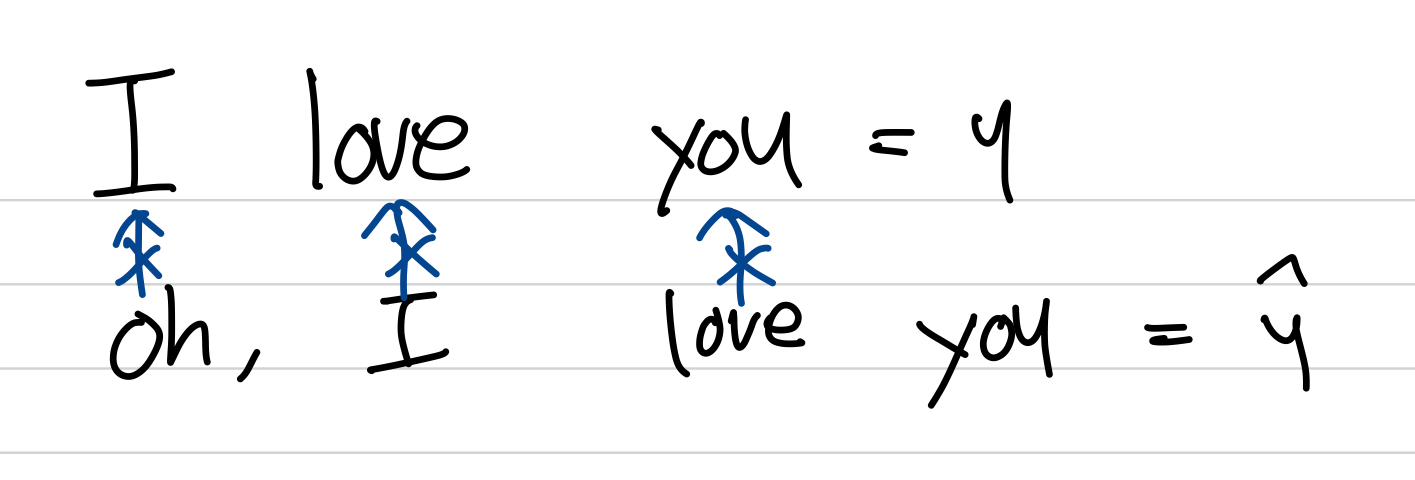 I love you = y
oh, I love you = ŷ